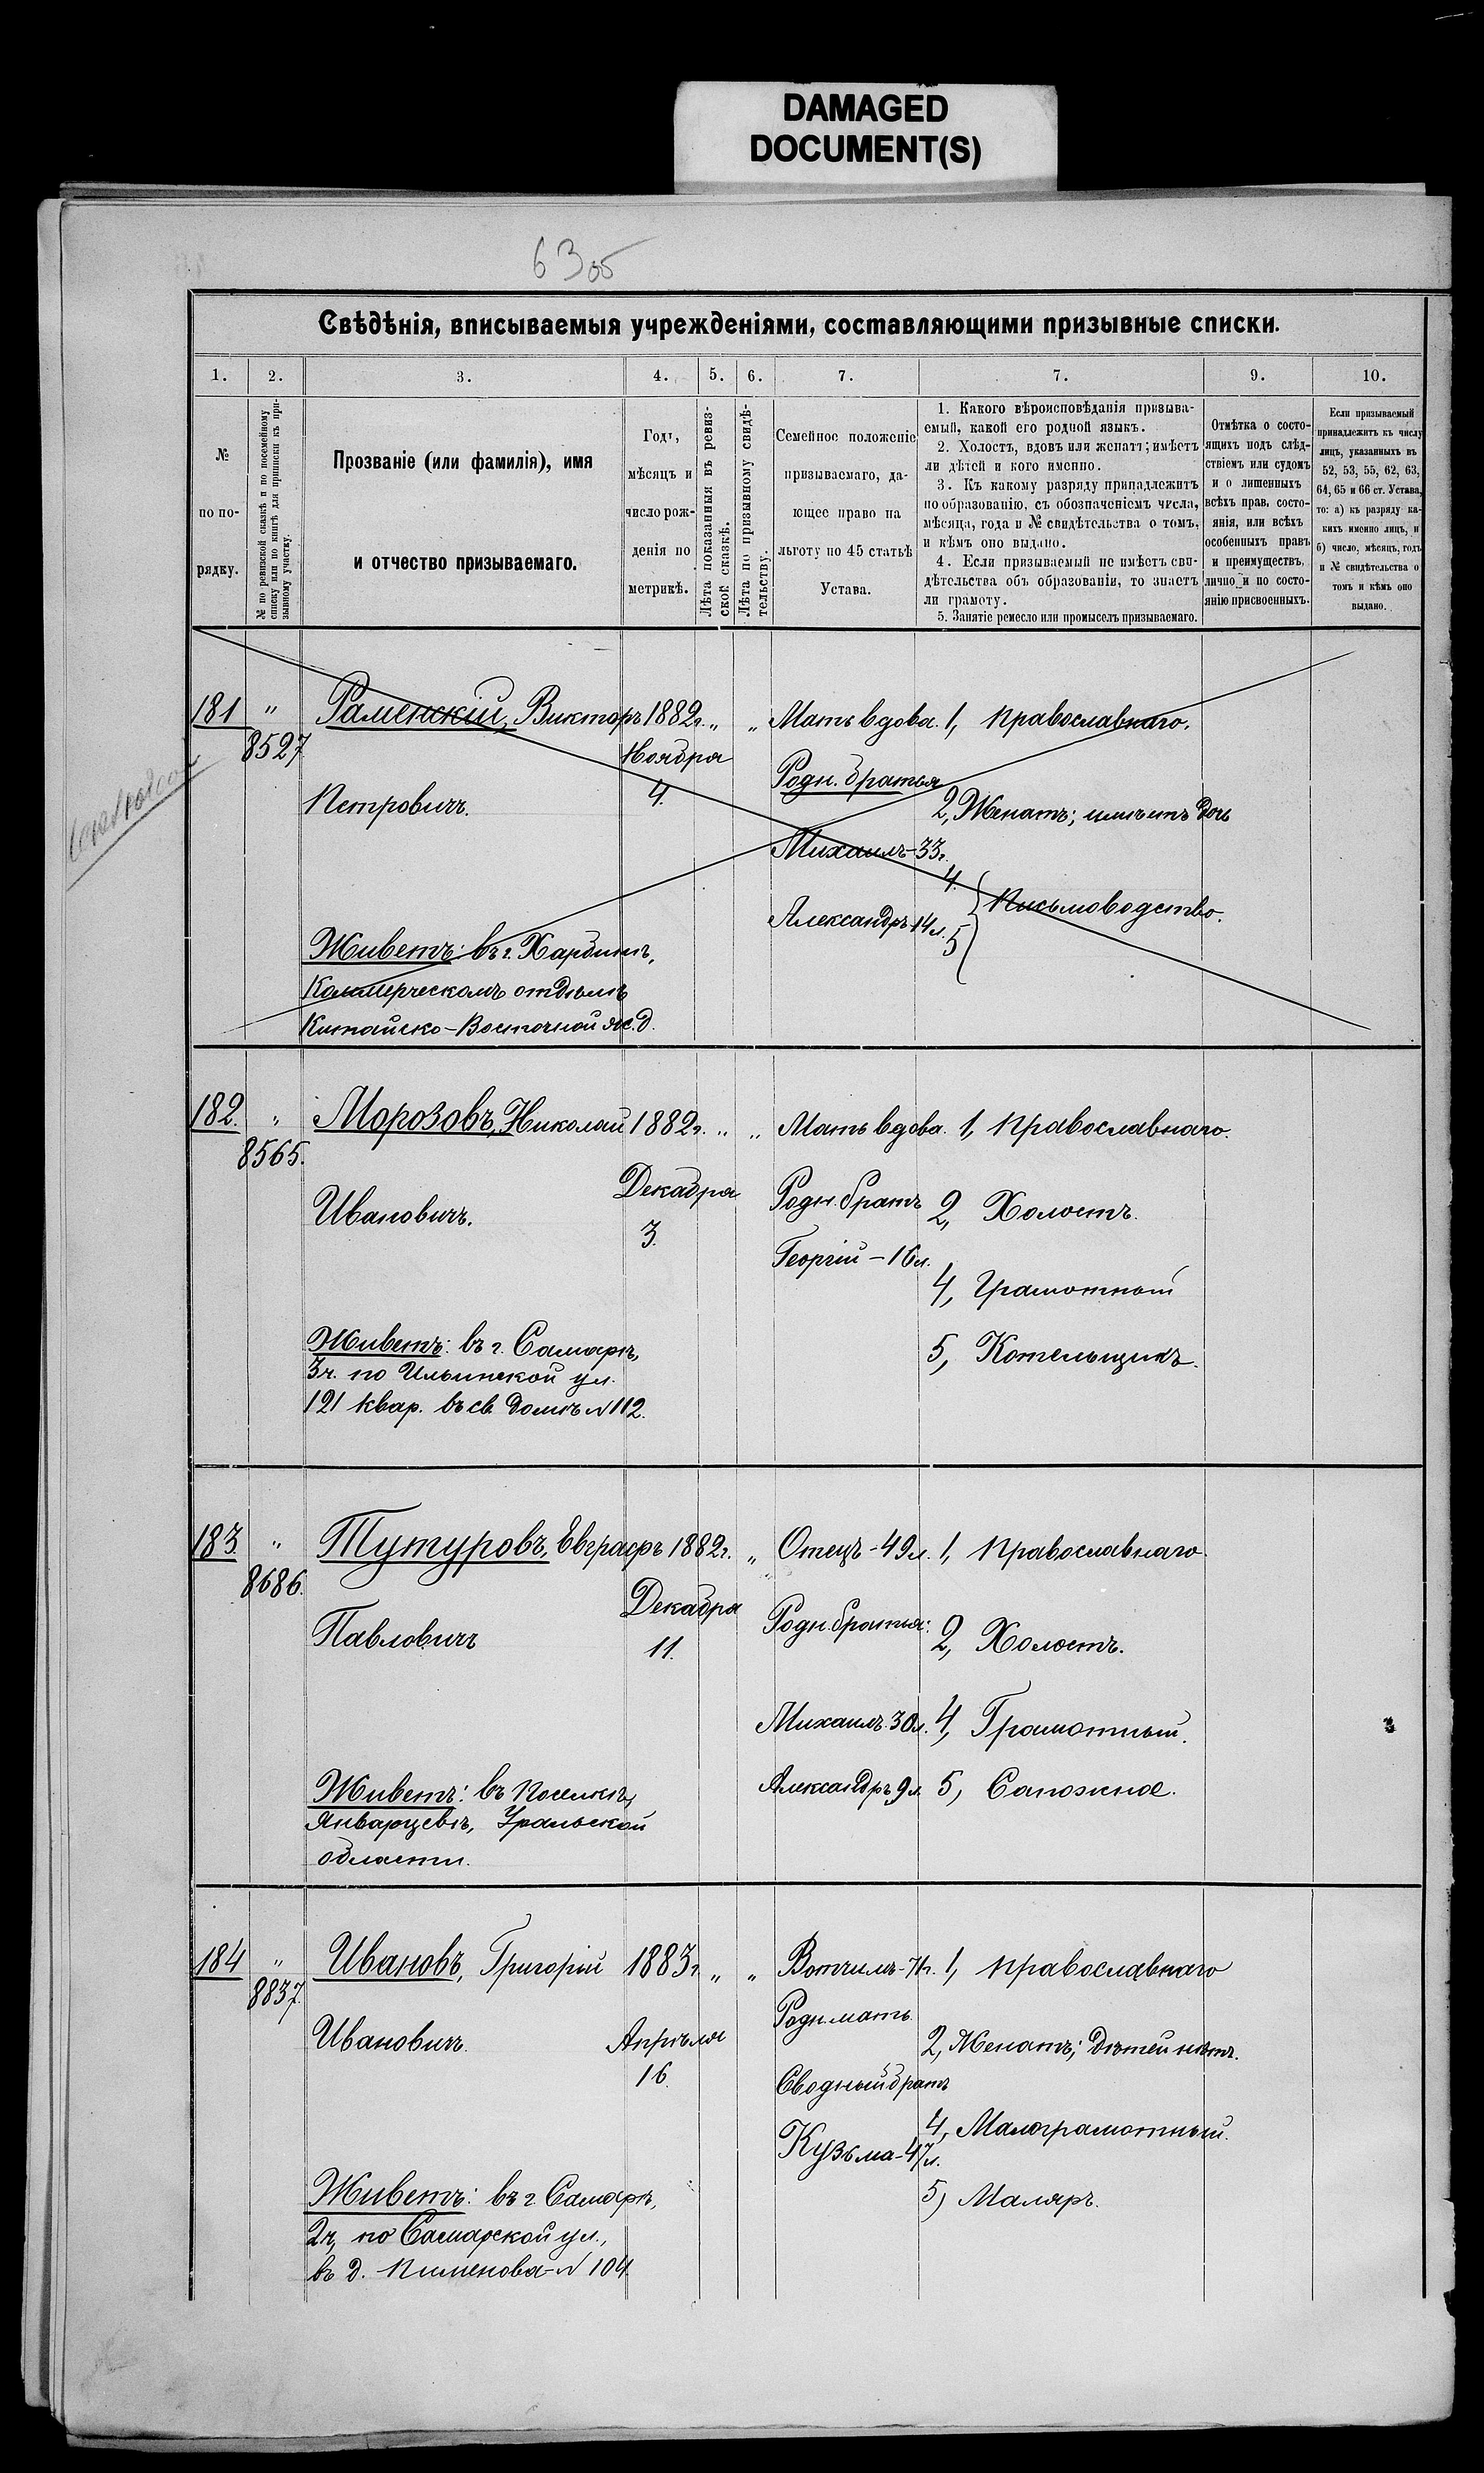 DAMAGED
DOCUMENT(S)
Свѣдѣнія, вписываемыя учрежденіями, составляющими призывные списки.
1. 2. 3. 4. 5. 6. 7. 7. 9. 10.
№
по по-
рядку.
№ по ревизской сказкѣ и по посемейному
списку или по книгѣ для приписки къ при-
зывному участку.
Прозваніе (или фамилія), имя
и отчество призываемаго.
Годъ,
мѣсяцъ и
число рож-
денія по
метрикѣ.
Лѣта показанныя въ ревиз-
ской сказкѣ.
Лѣта по призывному свидѣ-
тельству.
Семейное положеніе
призываемаго, да-
ющее право на
льготу по 45 статьѣ
Устава.
1. Какого вѣроисповѣданія призыва-
емый, какой его родной языкъ.
2. Холостъ, вдовъ или женатъ; имѣетъ
ли дѣтей и кого именно.
3. Къ какому разряду принадлежитъ
по образованію, съ обозначеніемъ числа,
мѣсяца, года и № свидѣтельства о томъ,
и кѣмъ оно выдано.
4. Если призываемый не имѣетъ сви-
дѣтельства объ образованіи, то знаетъ
ли грамоту.
5. Занятіе ремесло или промыселъ призываемаго.
Отмѣтка о состо-
ящихъ подъ слѣд-
ствіемъ или судомъ
и о лишенныхъ
всѣхъ правъ состо-
янія, или всѣхъ
особенныхъ правъ
и преимуществъ,
лично и по состо-
янію присвоенныхъ.
Если призываемый
принадлежитъ къ числу
лицъ, указанныхъ въ
52, 53, 55, 62, 63,
64, 65 и 66 ст. Устава,
то: а) къ разряду ка-
кихъ именно лицъ, и
б) число, мѣсяцъ, годъ
и № свидѣтельства о
томъ и кѣмъ оно
выдано.
181 " Раменскій, Викторъ 1882г. " " Мать вдова. 1, Православнаго.
8527 Ноября
Родн. братья
Петровичъ. 4. 2, Женатъ; имѣетъ дочь
Михаилъ-33г.
4.
Александръ 14л. 5 Письмоводство.
Живетъ: въ г. Харбинѣ,
Коммерческомъ отдѣлѣ
Китайско-Восточной ж.д.
182. " Морозовъ, Николай 1882г. " " Мать вдова. 1, Православнаго.
8565.
Ивановичъ. Декабря Родн. братъ 2, Холостъ.
3. Георгій - 16л.
4, Грамотный
Живетъ: въ г. Самарѣ, 5, Котельщикъ.
3ч. по Ильинской ул.
121 квар. въ св. домѣ №112.
183. " Тутуровъ, Евграфъ 1882г. " Отецъ - 49л. 1, Православнаго.
8686. Декабря
Павловичъ 11. Родн. братья: 2, Холостъ.
Михаилъ 30л. 4, Грамотный.
Живетъ: въ Поселкѣ, Александръ 9л. 5, Сапожное.
Январцевѣ, Уральской
области.
184 " Ивановъ, Григорій 1883г. " " Вотчимъ-71г. 1, Православнаго
8837. Родн. мать.
Ивановичъ. Апрѣля 2, Женатъ; дѣтей нѣтъ.
16. Сводный братъ
4, Малограмотный.
Кузьма-47л.
Живетъ: въ г. Самарѣ, 5) Маляръ.
2ч, по Самарской ул.,
въ д. Пименова № 104.